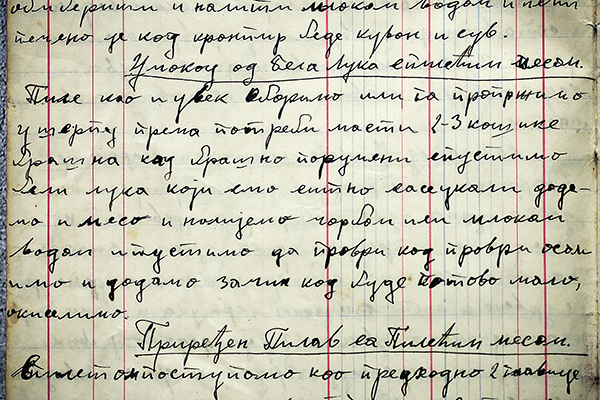 обиберити и налити млоком водом и пети
печено је код кромпир беде куван и сув.
Упокод од бела лука спилећим месом.
Пиле као и увек сваримо или га пропржимо
у шерпу према потреби масти 2-3 кашике
брашна кад брашно порумени спустимо
бели лука који смо ситно насецкали дода-
мо и месо и налијемо чорбом или млаком
водом и пустимо да проври код проври осол
имо и додамо зачин код буде готово мало,
окиселимо.
Приређен Пилав са Пилећим месом.
пилетом поступамо као предходно 2 главице